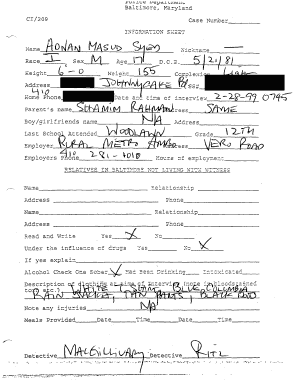 Police Department
Baltimore, Maryland
CI/209 Case Number
INFORMATION SHEET
Name ADNAN MASUD SYED Nickname —
Race I Sex M Age 17 D.O.B. 5/21/81
Height 6-0 Weight 155 Complexion
Address JOHNNYCAKE Rd SS#
410
Home Phone Date and time of interview 2-28-99 0745
Parent's name SHAMIM RAHMAN Address SAME
Boy/girlfriends name N/A Address
Last School Attended WOODLAWN Grade 12TH
Employer RURAL METRO AMBO Address VERO ROAD
410
Employers Phone 281-4010 Hours of employment
RELATIVES IN BALTIMORE NOT LIVING WITH WITNESS
Name Relationship
Address Phone
Name Relationship
Address Phone
Read and Write Yes X No
Under the influence of drugs Yes No X
If yes explain
Alcohol Check One Sober X Has Been Drinking Intoxicated
Description of clothing at time of interview (note in bloodstained
etc.) WHITE T SHIRT, BLUE COLUMBIA
RAIN JACKET, TAN PANTS, BLACK
Note any injuries N/A
Meals Provided Date Time Date Time Date Time
Detective MACGILLIVARY Detective RITZ